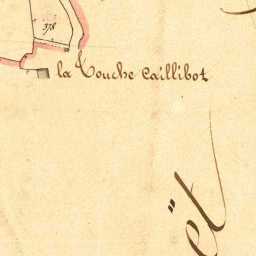 378
la Touche Caillibot
ët